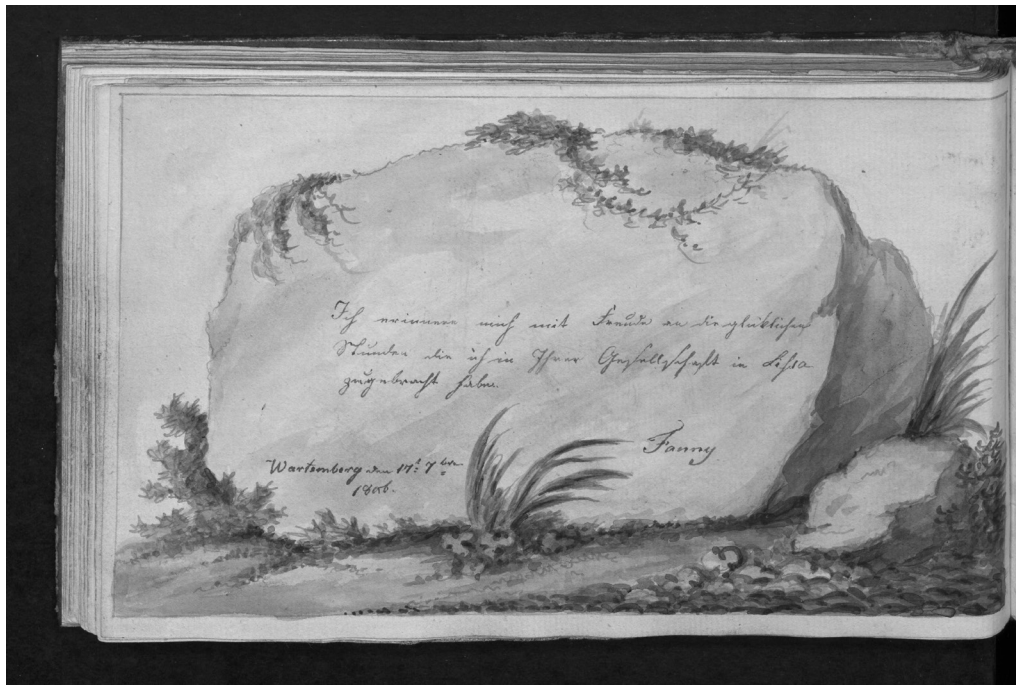 Ich erinnere mich mit Freude an die glüklichen
Stunden die ich in Ihrer Gesellschaft in
zugebracht habe.
Fanny
Wartemberg den 17t 7bre
1806.